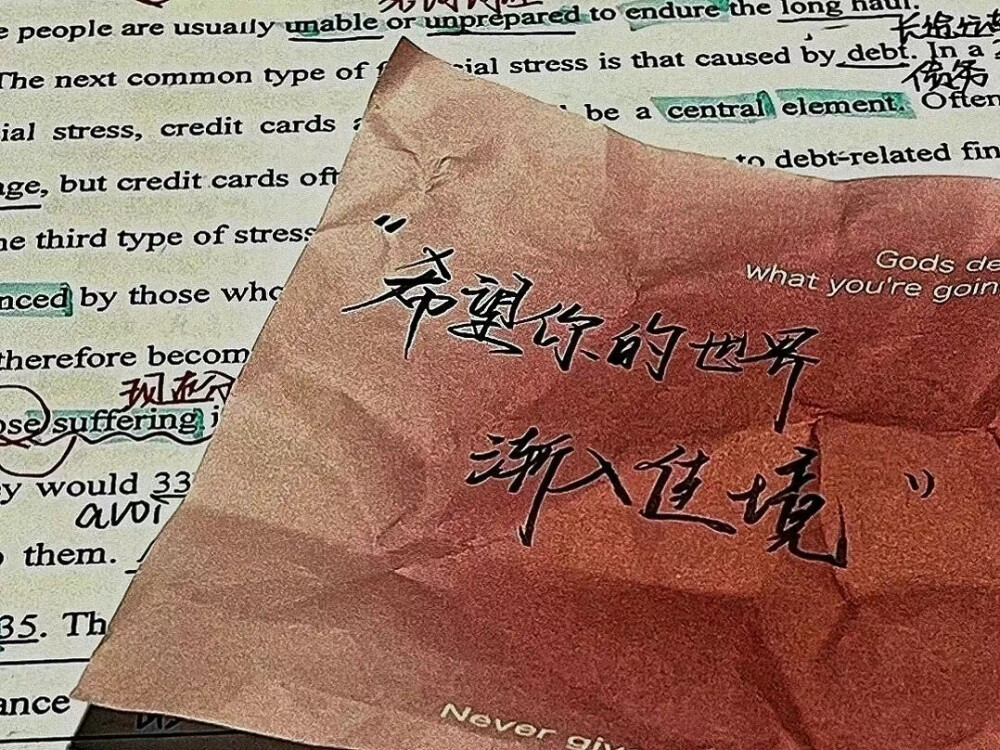 e people are usually unable or unprepared to endure the long haul.
The next common type of f cial stress is that caused by debt. In a
债务
ial stress, credit cards be a central element. Often
to debt-related fin
age, but credit cards oft
he third type of stress
Gods de
what you're goin
nced by those who
"希望你的世界
therefore becom
现在分
ose suffering i
渐入佳境"
ey would 33
avoi
them.
35. Th
ance
Never giv